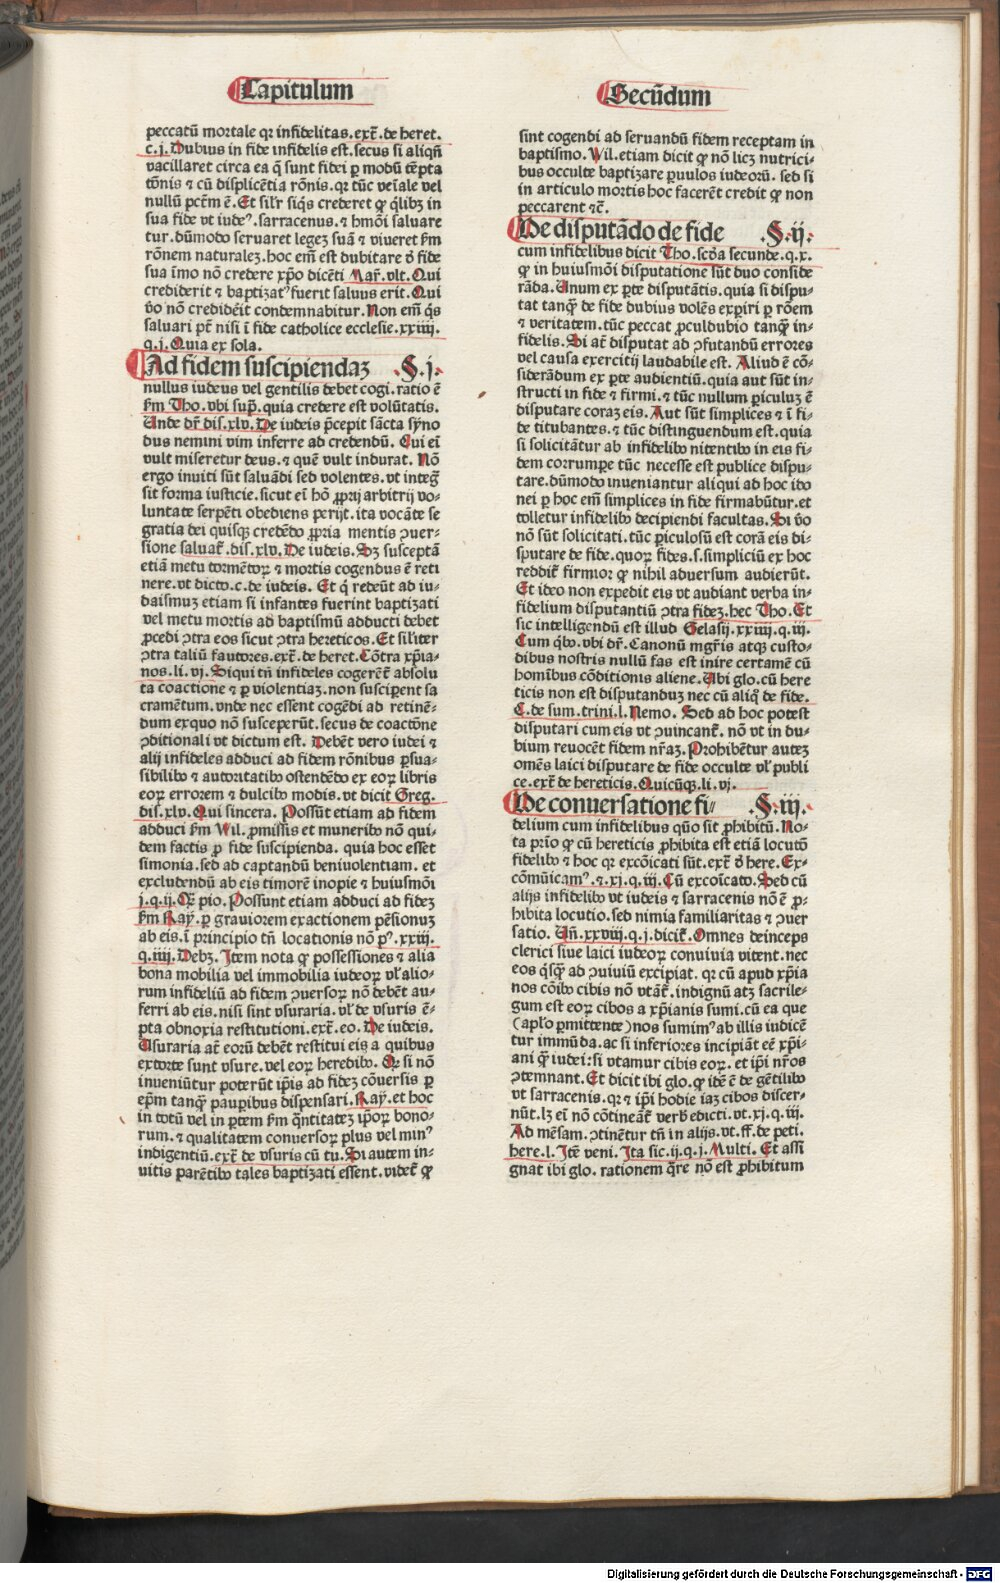 Capitulum
peccatū mortale qꝛ infidelitas.extᷓ.de heret.
c.j.Dubius in fide infidelis est.secus si aliqñ
vacillaret circa ea q̄ sunt fidei ꝑ modū tēpta
tōnis ⁊ cū displicētia rōnis.qꝛ tūc veīale vel
nullū pctm̄ ē.Et silr̄ siq̄s crederet ꝙ q̄libꝫ in
sua fide vt iudeꝰ.sarracenus.⁊ hmōi saluare
tur.dūmodo seruaret legeꝫ suā ⁊ viueret ẜm
rōnem naturaleꝫ.hoc em̄ est dubitare ꝺ̄ fide
sua īmo nō credere xp̄o dicēti Mar̄.vlt.Qui
crediderit ⁊ baptizatꝰ fuerit saluus erit.Qui
v̄o nō credid̄eit condemnabitur.Non em̄ q̄s
saluari pōt nisi ī fide catholice ecclesie.xxiiij.
q.j.Quia ex sola.
Ad fidem suscipiendaꝫ .§.j.
nullus iudeus vel gentilis debet cogi.ratio ē
ẜm Tho.vbi supᷓ.quia credere est volūtatis.
Unde dr̄ dis.xlv.De iudeis p̄cepit sācta syno
dus nemini vim inferre ad credendū. Cui ei
vult miseretur deus.⁊ quē vult indurat. Nō
ergo inuiti sūt saluādi sed volentes.vt integᷓ
sit forma iusticie.sicut ei hō ꝓprij arbitrij vo⸗
luntate serpēti obediens perijt.ita vocāte se
gratia dei quisqꝫ credēdo ꝓpria mentis ꝯuer⸗
sione saluat̄.dis.xlv.De iudeis.Sꝫ susceptā
etiā metu tormētoꝝ ⁊ mortis cogendus ē reti
nere.vt dicto.c.de iudeis. Et q̄ redeūt ad iu⸗
daismuꝫ etiam si infantes fuerint baptizati
vel metu mortis ad baptismū adducti debet
ꝓcedi ꝯtra eos sicut ꝯtra hereticos.Et siliter
ꝯtra taliū fautores.extᷓ.de heret.Cōtra xp̄ia⸗
nos.li.vj.Siqui tn̄ infideles cogerēt̄ absolu
ta coactione ⁊ ꝑ violentiaꝫ.non suscipent sa
cramētum.vnde nec essent cogēdi ad retinē⸗
dum exquo nō susceperūt.secus de coactōne
ꝯditionali vt dictum est. Debēt vero iudei ⁊
alij infideles adduci ad fidem rōnibus ꝑsua⸗
sibilibꝰ ⁊ autoritatibꝰ ostendēdo ex eoꝝ libris
eoꝝ errorem ⁊ dulcibꝰ modis.vt dicit Greg.
dis.xlv.Qui sincera. Possūt etiam ad fidem
adduci ẜm Wil.ꝓmissis et muneribꝰ nō qui⸗
dem factis ꝓ fide suscipienda. quia hoc esset
simonia.sed ad captandū beniuolentiam. et
excludendū ab eis timorē inopie ⁊ huiusmōi
j.q.ij.Qꝫ pio.Possunt etiam adduci ad fideꝫ
ẜm Ray.ꝑ grauiorem exactionem pēsionuꝫ
ab eis.ī principio tn̄ locationis nō pꝰ.xxiij.
q.iiij.Debꝫ.Item nota ꝙ possessiones ⁊ alia
bona mobilia vel immobilia iudeoꝝ vl̄ alio⸗
rum infideliū ad fidem ꝯuersoꝝ nō debēt au⸗
ferri ab eis.nisi sint vsuraria.vl̄ de vsuris ē⸗
pta obnoxia restitutioni.extᷓ.eo.De iudeis.
Usuraria at̄ eorū debēt restitui eis a quibus
extorte sunt vsure.vel eoꝝ heredibꝰ.Qꝛ si nō
inueniūtur poterūt ip̄is ad fideꝫ cōuersis ꝑ
ep̄m tanqᷓ pauꝑibus dispensari.Ray.et hoc
in totū vel in ꝑtem ẜm q̄ntitateꝫ ip̄oꝝ bono⸗
rum.⁊ qualitatem conuersoꝝ plus vel minꝰ
indigentiū.extᷓ de vsuris cū tu.Si autem in⸗
uitis parētibꝰ tales baptizati essent.videt̄ ꝙ
Secūdum
sint cogendi ad seruandū fidem receptam in
baptismo.Wil.etiam dicit ꝙ nō licꝫ nutrici⸗
bus occulte baptizare ꝑuulos iudeorū. sed si
in articulo mortis hoc facerēt credit ꝙ non
peccarent ⁊c̄.
De disputādo de fide .§.ij.
cum infidelibus dicit Tho.scōa secunde.q.x.
ꝙ in huiusmōi disputatione sūt duo conside
rāda.Unum ex ꝑte disputātis.quia si dispu⸗
tat tanqᷓ de fide dubius volēs expiri ꝑ rōem
⁊ veritatem.tūc peccat ꝓculdubio tanqᷓ in⸗
fidelis.Si at̄ disputat ad ꝯfutandū errores
vel causa exercitij laudabile est. Aliud ē cō⸗
siderādum ex ꝑte audientiū.quia aut sūt in⸗
structi in fide ⁊ firmi.⁊ tūc nullum ꝑiculuꝫ ē
disputare coraꝫ eis.Aut sūt simplices ⁊ ī fi⸗
de titubantes.⁊ tūc distinguendum est.quia
si solicitātur ab infidelibꝰ nitentibꝰ in eis fi⸗
dem corrumpe tūc necesse est publice dispu⸗
tare.dūmodo inueniantur aliqui ad hoc ido
nei ꝑ hoc em̄ simplices in fide firmabūtur.et
tolletur infidelibꝰ decipiendi facultas.Si v̄o
nō sūt solicitati.tūc ꝑiculosū est corā eis di⸗
sputare de fide.quoꝝ fides.s.simpliciū ex hoc
reddit̄ firmior ꝙ nihil aduersum audierūt.
Et ideo non expedit eis vt audiant verba in⸗
fidelium disputantiū ꝯtra fideꝫ.hec Tho.Et
sic intelligendū est illud Gelasij.xxiiij.q.iij.
Cum qbꝰ.vbi dr̄.Canonū mgr̄is atqꝫ custo⸗
dibus nostris nullū fas est inire certamē cū
homībus cōditionis aliene.Ubi glo.cū here
ticis non est disputanduꝫ nec cū aliq̄ de fide.
C.de sum.trini.l.Nemo. Sed ad hoc potest
disputari cum eis vt ꝯuincant̄. nō vt in du⸗
bium reuocēt fidem nr̄aꝫ.Prohibētur auteꝫ
omēs laici disputare de fide occulte vl̄ publi
ce.extᷓ de hereticis.Quicūqꝫ.li.vj.
De conuersatione fi⸗ .§.iij.
delium cum infidelibus qūo sit ꝓhibitū.No⸗
ta pr̄io ꝙ cū hereticis ꝓhibita est etiā locutō
fidelibꝰ ⁊ hoc qꝛ excōicati sūt.extᷓ ꝺ̄ here.Ex⸗
cōmūicamꝰ.⁊.xj.q.iij.Cū excoīcato.Sed cū
alijs infidelibꝰ vt iudeis ⁊ sarracenis nō ē ꝓ⸗
hibita locutio.sed nimia familiaritas ⁊ ꝯuer
satio. Uñ.xxviij.q.j.dicit̄. Omnes deinceps
clerici siue laici iudeoꝝ conuiuia vitent.nec
eos q̄sqᷓ ad ꝯuiuiū excipiat. qꝛ cū apud xp̄ia
nos cōibꝰ cibis nō vtāt̄.indignū atqꝫ sacrile⸗
gum est eoꝝ cibos a xp̄ianis sumi.cū ea que
(aplo̅ ꝑmittente) nos sumimꝰ ab illis iudicē
tur immūda.ac si inferiores incipiāt eē xp̄i⸗
ani qᷓ iudei:si vtamur cibis eoꝝ.et ip̄i nr̄os
ꝯtemnant.Et dicit ibi glo.ꝙ idē ē de gētilibꝰ
vt sarracenis.qꝛ ⁊ ip̄i hodie iaꝫ cibos discer⸗
nūt.lꝫ ei nō cōtineat̄ verb̄ edicti.vt.xj.q.iij.
Ad mēsam.ꝯtinētur tn̄ in alijs.vt.ff.de peti.
here.l.Itē veni.Ita sic.ij.q.j.Multi. Et assi
gnat ibi glo.rationem q̄re nō est ꝓhibitum
Digitalisierung gefördert durch die Deutsche Forschungsgemeinschaft - DFG